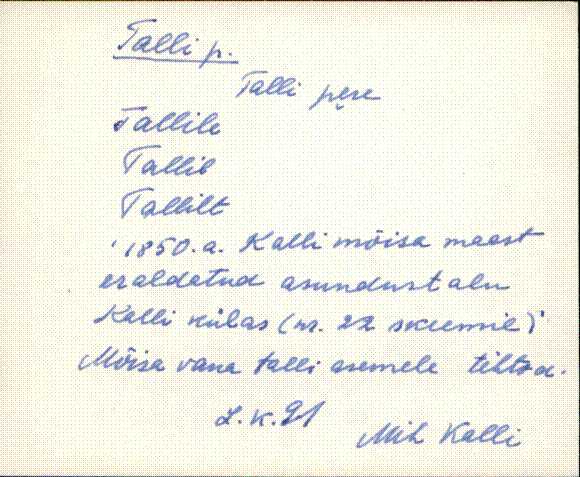 Talli p.
Talli pere
Tallile
Tallil
Tallilt
'1850.a. Kalli mõisa maast
eraldatud asundustalu
Kalli külas (nr. 22 skeemil)'
Mõisa vana talli asemele tehtud.
L.K. 91
Mih Kalli